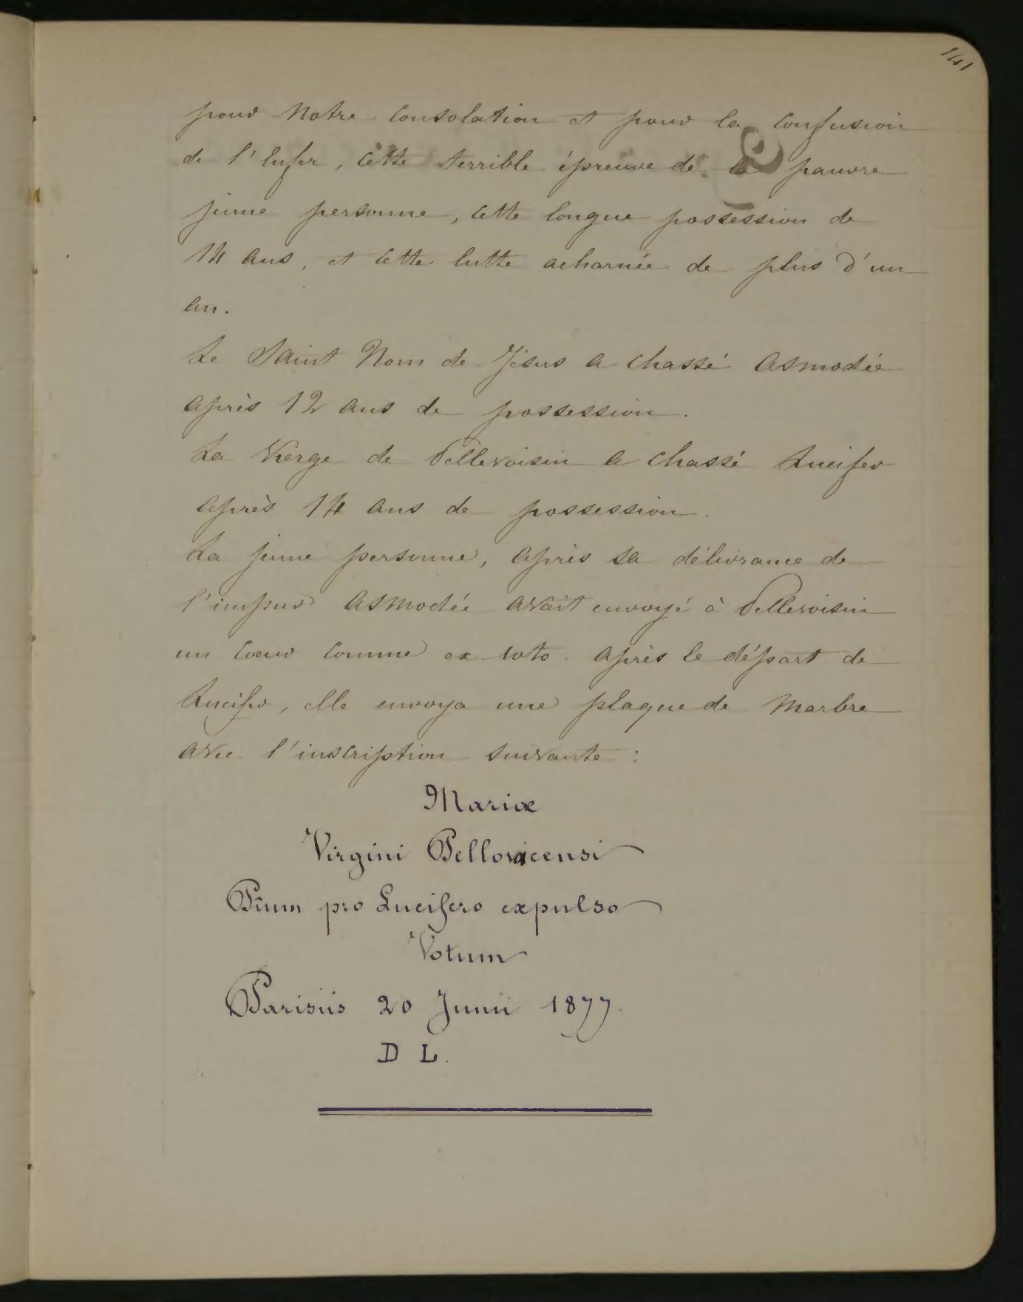 141
pour Notre Consolation et pour la Confusion
de l'Enfer, Cette terrible épreuve de la pauvre
jeune personne, Cette longue possession de
14 ans, et Cette lutte acharnée de plus d'un
an.
Le Saint Nom de Jésus a Chassé Asmodée
après 12 ans de possession.
La Vierge de Pellevoisin a Chassé Lucifer
après 14 ans de possession.
La jeune personne, après sa délivrance de
l'impur Asmodée avait envoyé à Pellevoisin
un Coeur Comme ex-voto. Après le départ de
Lucifer, elle envoya une plaque de Marbre
avec l'inscription suivante :
Mariæ
Virgini Pellovicensi
Pium pro Lucifero expulso
Votum
Parisiis 20 Junii 1877.
D L.